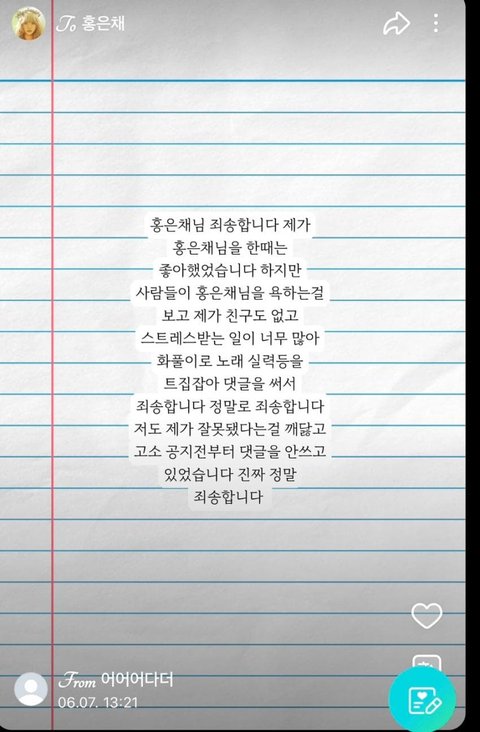 To 홍은채
홍은채님 죄송합니다 제가
홍은채님을 한때는
좋아했었습니다 하지만
사람들이 홍은채님을 욕하는걸
보고 제가 친구도 없고
스트레스받는 일이 너무 많아
화풀이로 노래 실력등을
트집잡아 댓글을 써서
죄송합니다 정말로 죄송합니다
저도 제가 잘못됐다는걸 깨닫고
고소 공지전부터 댓글을 안쓰고
있었습니다 진짜 정말
죄송합니다
From 어어어다더
06.07. 13:21